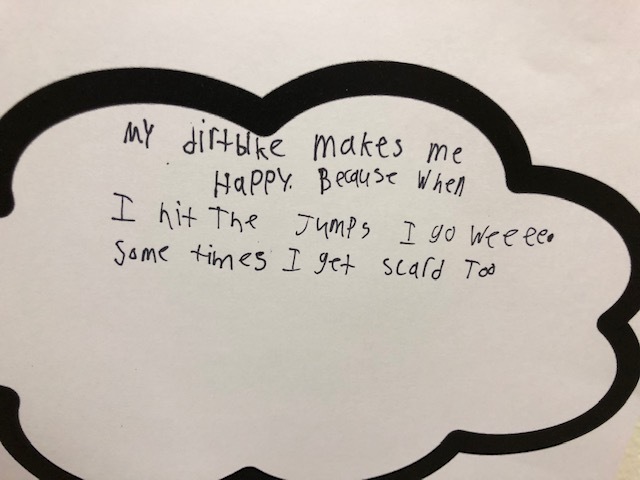 MY dirtbike makes me
HAPPY. Because When
I hit The Jumps I go Weeeee.
Some times I get scard Too